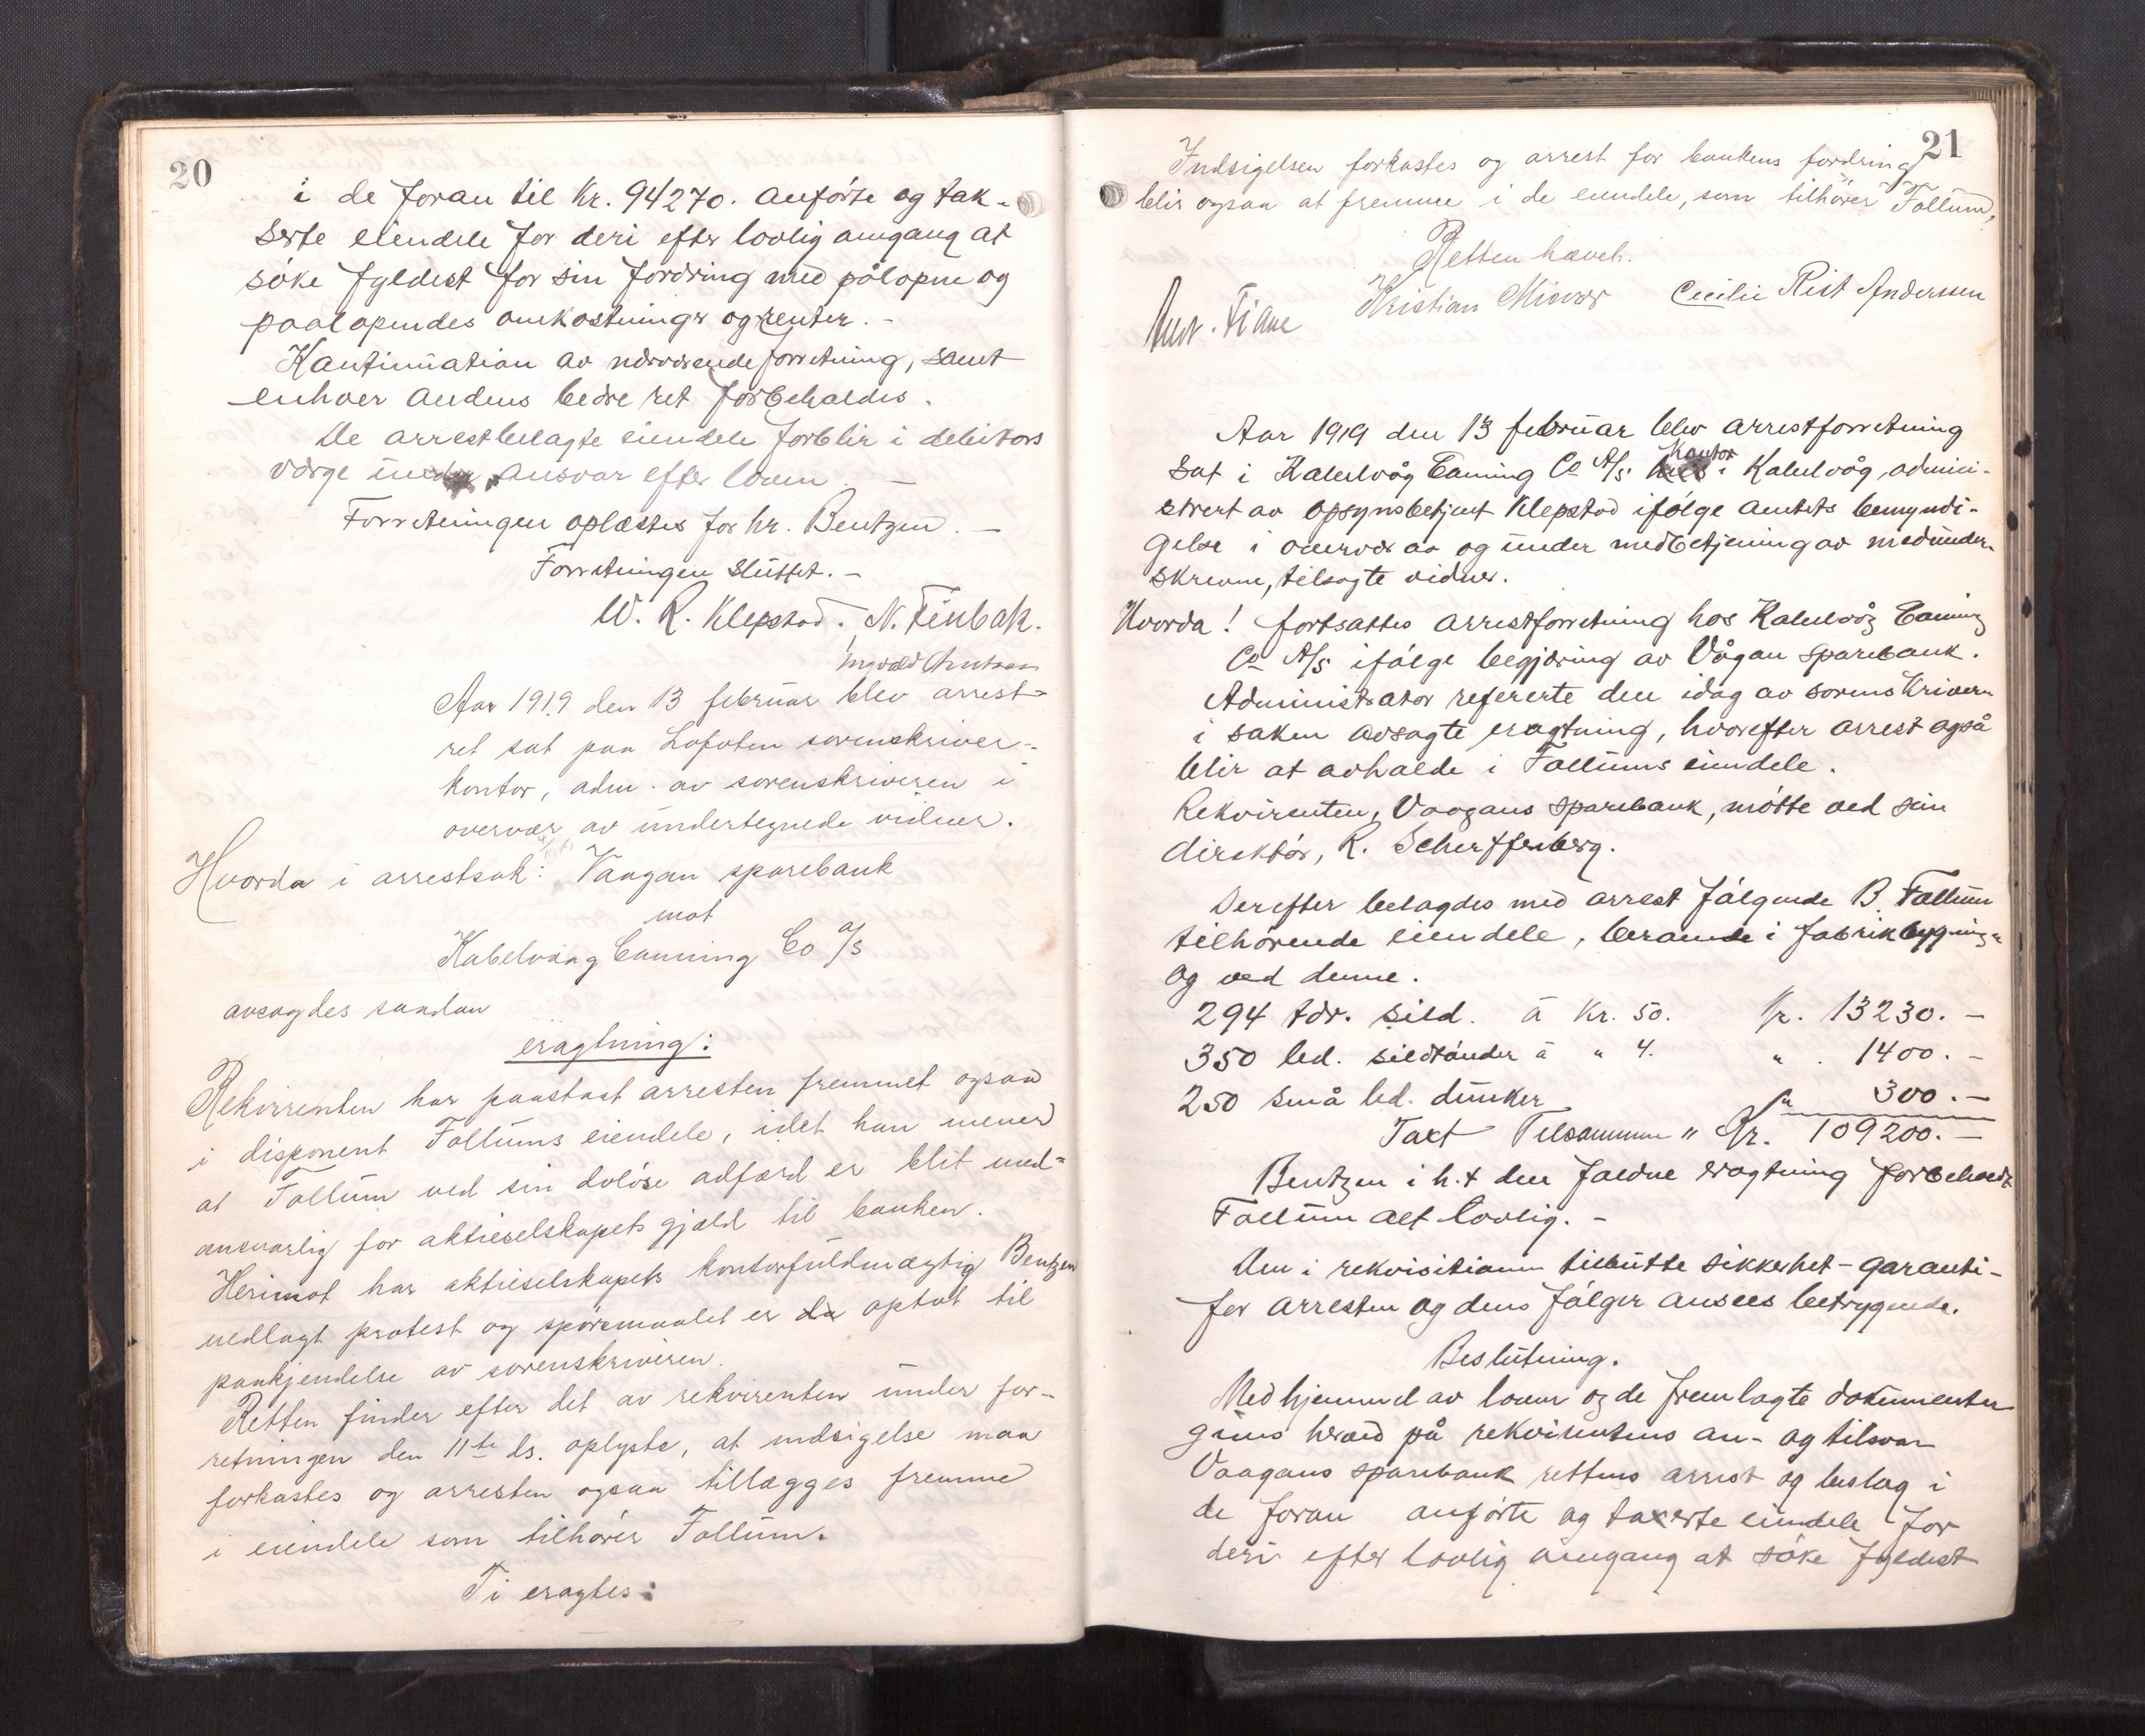 20
i de foran til Kr. 94270. anförte og tak-
serte eiendele for deri efter lovlig omgang at
söke fyldest for sin fordring med pålöpne og
paalöpendes omkostninger og renter. -
Kontinuation av nærværende forretning, samt
enhver andens bedre ret forbeholdes.
De arrestbelagte eiendele forblir i debitors
værge under ansvar efter loven. -
Forretningen oplæstes for hr. Bentzen. -
Forretningen sluttet. -
W. R. Klepstad. N. Finbak.
Ingvald
Aar 1919 den 13 februar blev arrest-
ret sat paa Lofoten sorenskriver-
kontor, adm. av sorenskriveren i
overvær av undertegnede vidner.
Hvorda i arrestsak: Vaagan sparebank
mot
Kabelvaag Canning Co a/s
avsagdes saadan
eragtning:
Rekvirenten har paastaat arresten fremmet ogsaa
i disponent Follums eiendele, idet han mener
at Follum ved sin dolöse adfærd er blit med-
ansvarlig for aktieselskapets gjæld til banken.
Herimot har aktieselskapets kontorfuldmægtig Bentzen
nedlagt protest og spörsmaalet er da optat til
paakjendelse av sorenskriveren.
Retten finder efter det av rekvirenten under for-
retningen den 11te ds. oplyste, at indsigelse maa
forkastes og arresten ogsaa tillægges fremme
i eiendele som tilhörer Follum.
Ti eragtes:
21
Indsigelsen forkastes og arrest for bankens fordring
blir ogsaa at fremme i de eiendele, som tilhörer Follum.
Retten hævet.
Kristian Cecilie Rist Andersen
Aar 1919 den 13 februar blev arrestforretning
sat i Kabelvåg Caning Co A/S hus kontor i Kabelvåg, admini-
strert av opsynsbetjent Klepstad ifölge amtets bemyndi-
gelse i overvær av og under medbetjening av medunder-
skrevne, tilsagte vidner.
Hvorda! fortsattes arrestforretning hos Kabelvåg Caning
Co A/S ifölge begjæring av Vågan sparebank.
Administrator refererte den idag av sorenskriveren
i saken avsagte eragtning, hvorefter arrest også
blir at avholde i Follums eiendele.
Rekvirenten, Vaagans sparebank, mötte ved sin
direktör, R. Scherffenberg.
Derefter belagdes med arrest fölgende B. Follum
tilhörende eiendele, beroende i fabrikbygning
og ved denne.
294 tdr. sild. á Kr. 50. Kr. 13230. -
350 led. sildtönder á " 4. " . 1400. -
250 små led. dunker " 300. -
Taxt Tilsammen " Kr. 109200. -
Bentzen i h. t den faldne eragtning forbeholdt
Follum alt lovlig. -
Den i rekvisitionen tilbudte sikkerhet - garanti -
for arresten og dens fölger ansees betryggende.
Beslutning.
Med hjemmel av loven og de fremlagte dokumenter
gives herved på rekvirentens an- og tilsvar
Vaagans sparebank rettens arrest og beslag i
de foran anförte og taxerte eiendele for
deri efter lovlig omgang at söke fyldest